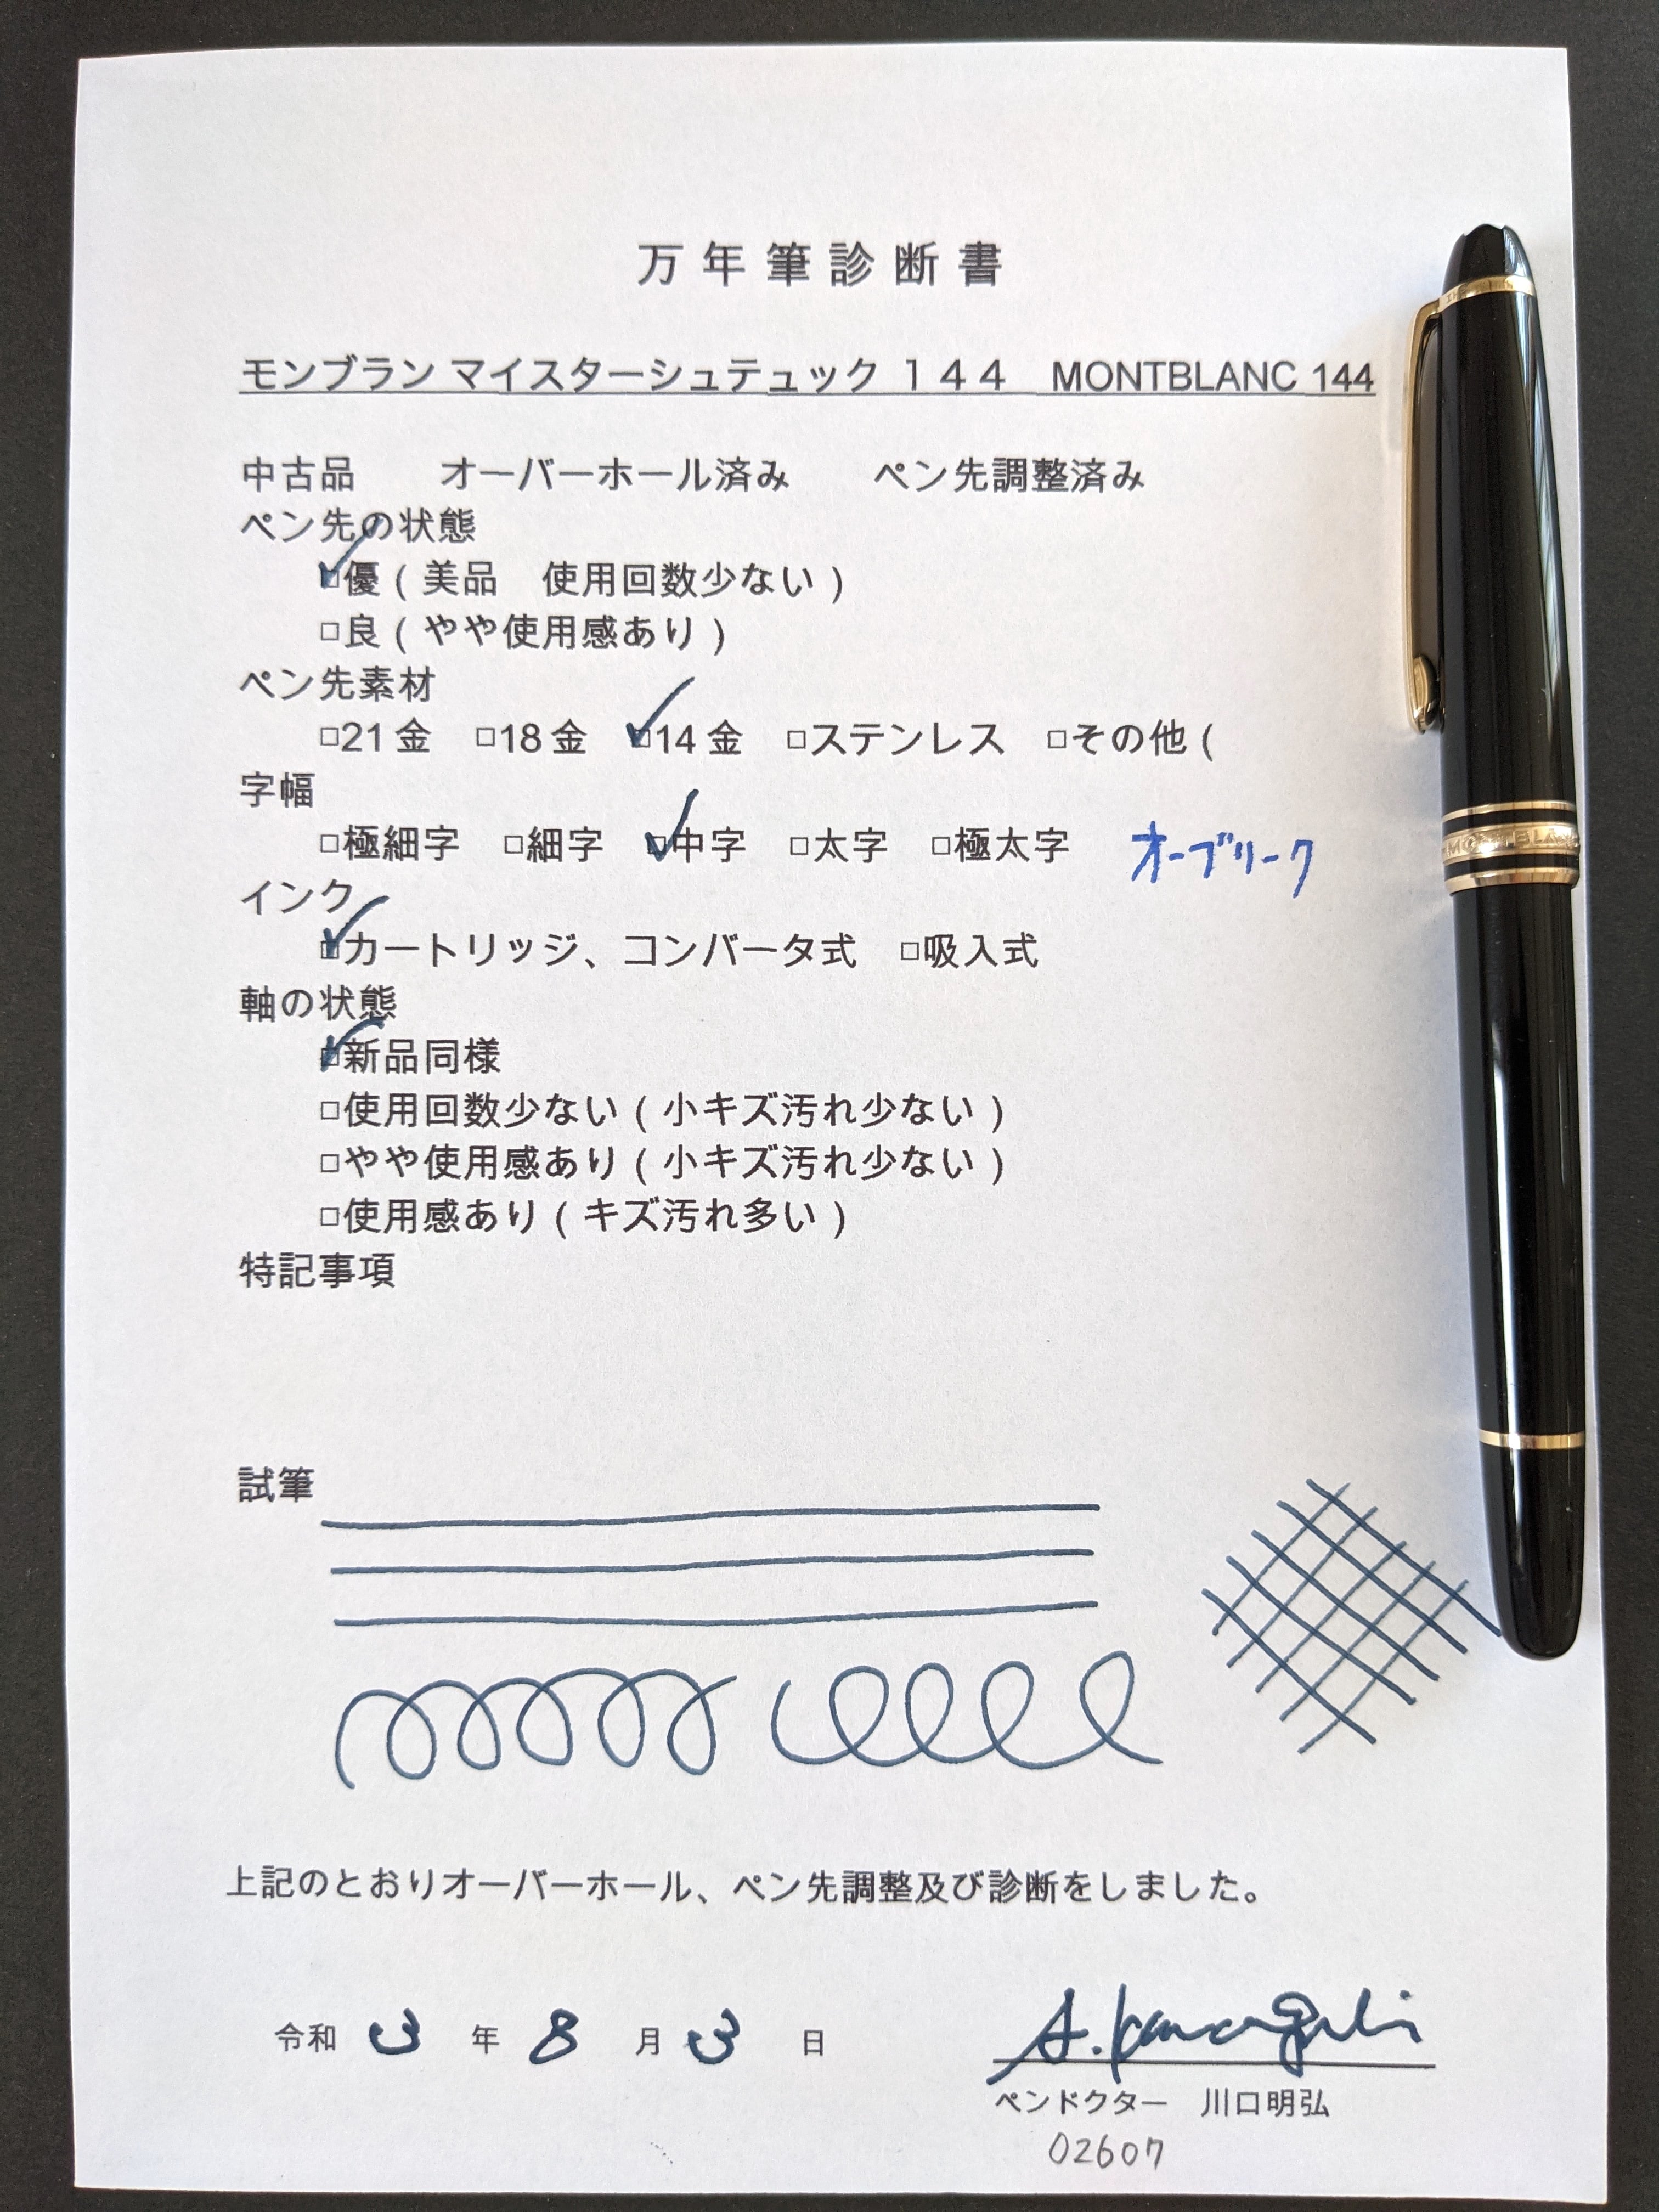 万年筆診断書
モンブラン マイスターシュテュック １４４　MONTBLANC 144
中古品　　オーバーホール済み　　ペン先調整済み
ペン先の状態
□優（美品　使用回数少ない）
□良（やや使用感あり）
ペン先素材
□21金　□18金　□14金　□ステンレス　□その他（
字幅
□極細字　□細字　□中字　□太字　□極太字　オーブリーク
インク
□カートリッジ、コンバータ式　□吸入式
軸の状態
□新品同様
□使用回数少ない（小キズ汚れ少ない）
□やや使用感あり（小キズ汚れ少ない）
□使用感あり（キズ汚れ多い）
特記事項
試筆
上記のとおりオーバーホール、ペン先調整及び診断をしました。
令和 3 年 8 月 3 日
A. Kawaguchi
ペンドクター　川口明弘
02607
MONTBLANC